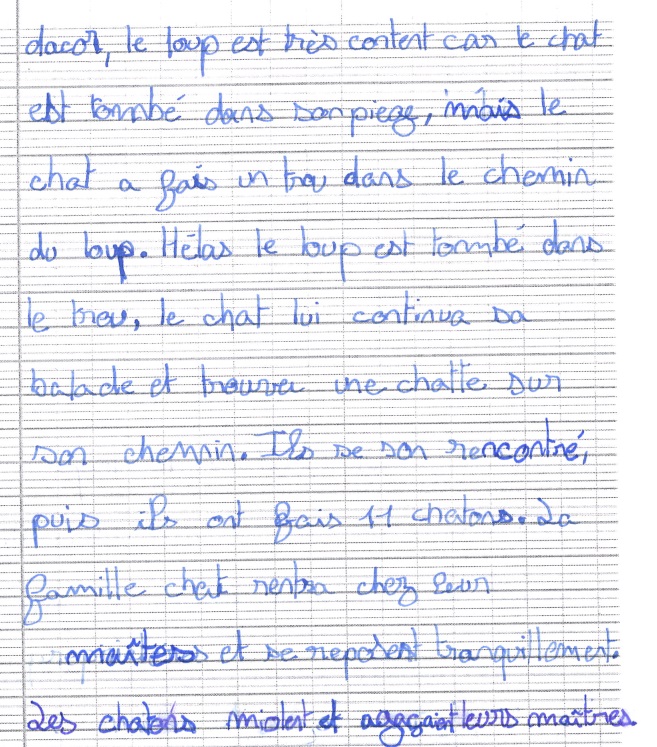 dacor, le loup est très content car le chat
est tombé dans son piege, mais le
chat a fais un trou dans le chemin
du loup. Hélas le loup est tombé dans
le trou, le chat lui continua sa
balade et trouva une chatte sur
son chemin. Ils se son rencontré,
puis ils ont fais 11 chatons. La
famille chat rentra chez leur
maîters et se reposent tranquillement.
Les chatons miolent et agaçait leurs maîtres.